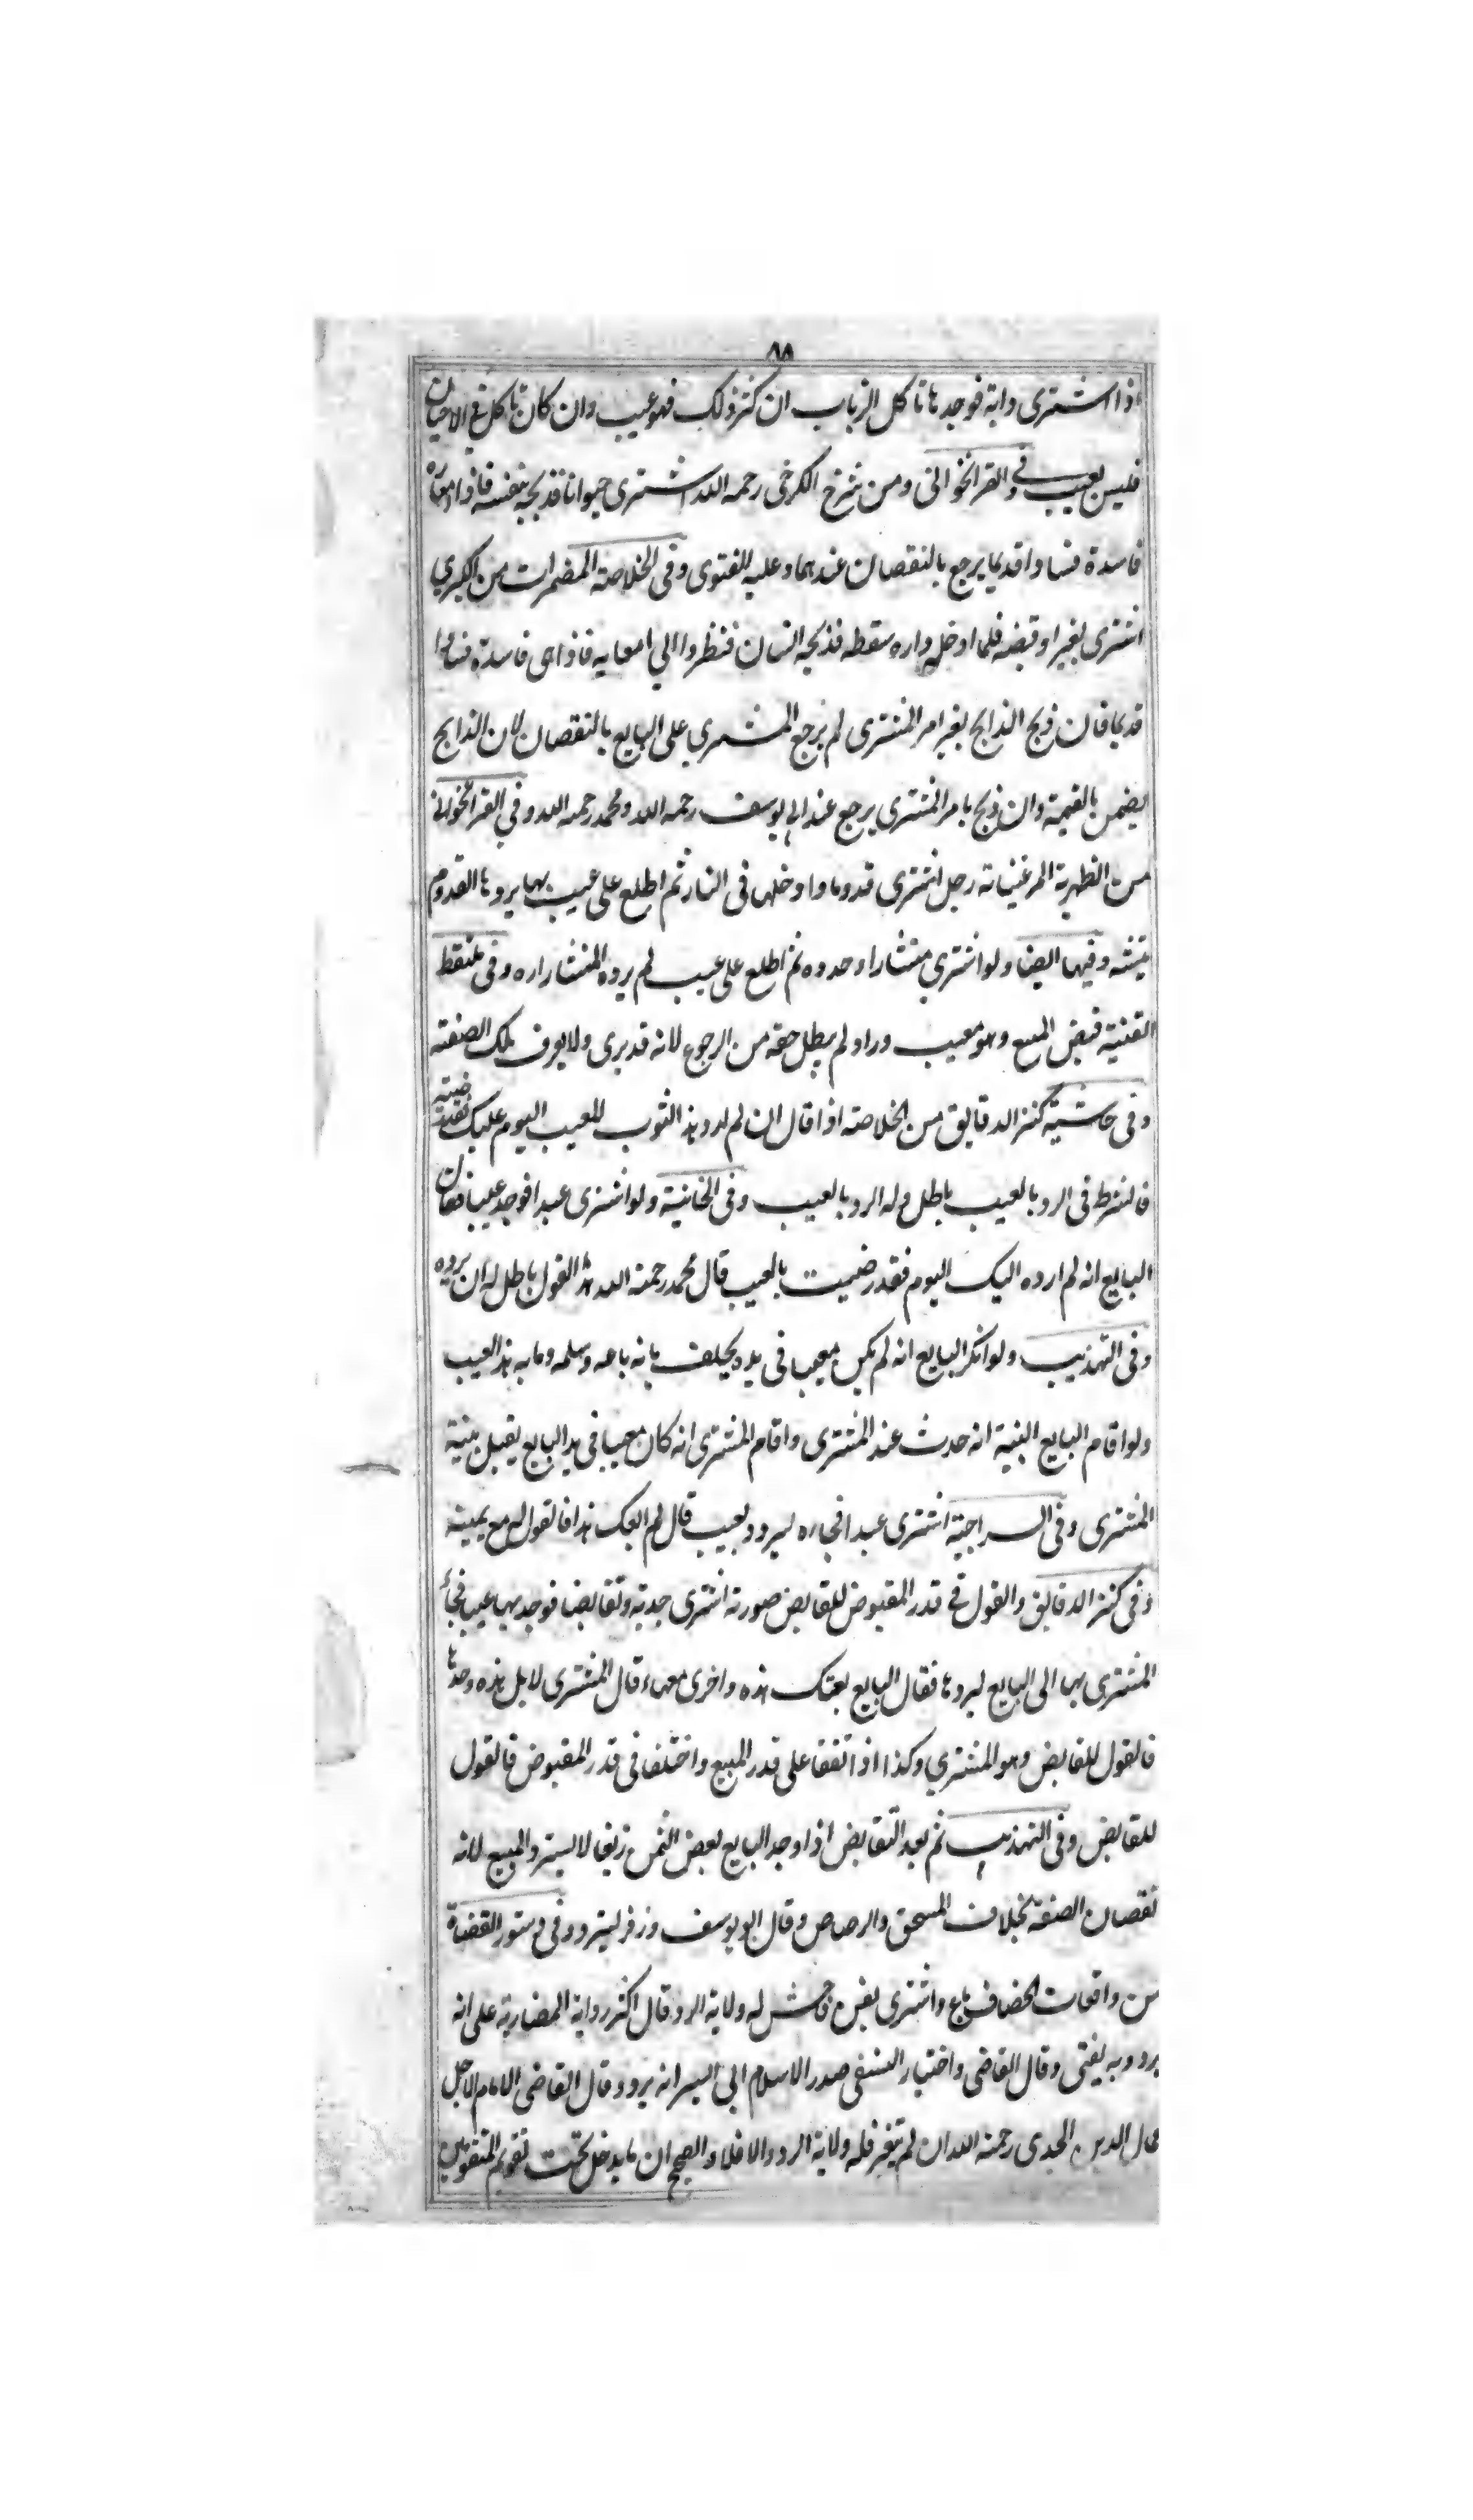 ٨٨
اذا اشترى دابة فوجدها تاكل الذباب ان كثر ذلك فهو عيب وان كان تاكل في الاحيان
فليس بعيب وفي القراخوانى ومن شرح الكرخى رحمه الله اشترى حيوانا فذبحه بنفسه فاذا امعاءه
فاسدة فسادا قديما يرجع بالنقصان عندهما وعليه الفتوى وفى الخلاصة المضمرات من الكبرى
اشترى بعيرا وقبضه فلما ادخل داره سقط فذبحه انسان فنظروا الى امعايه فاذا هى فاسدة فسادا
قديما فان ذبح الذابح بغير امر المشترى لم يرجع المشترى على البايع بالنقصان لان الذابح
يضمن بالقيمة وان ذبح بامر المشترى يرجع عند ابى يوسف رحمه الله ومحمد رحمه الله وفى القراخوانى
من الظهيرية المرغينانه رجل اشترى قدوما وادخلها فى النار ثم اطلع على عيب بها يردها القدوم
تيشه وفيها ايضا ولو اشترى منشارا وحدده ثم اطلع على عيب لم يرده المنشار اره وفى ملتقط
القنية قبض المبيع وهو معيب وراه لم يبطل حقه من الرجوع لانه قد يرى ولا يعرف تلك الصفته
وفى حاشية كنز الدقايق من الخلاصة اذا قال ان لم ارد هذا الثوب المعيب اليوم عليك فقد رضيته
فالشرط فى الرد بالعيب باطل وله الرد بالعيب وفى الخانية ولو اشترى عبدا فوجد عيبا فقال
البايع انه لم ارده اليك اليوم فقد رضيت بالعيب قال محمد رحمة الله هذا القول باطل له ان يرده
وفى التهذيب ولو انكر البايع انه لم يكن معيبا فى يده يحلف بانه باعه وسلمه وما به هذا العيب
ولو اقام البايع البنية انه حدث عند المشترى واقام المشترى انه كان معيبا فى يد البايع يقبل بينة
المشترى وفى السراجية اشترى عبدا فجاءه ليرد بعيب قال لم ابعك هذا فالقول له مع يمينه
وفى كنز الدقايق والقول فى قدر المقبوض للقابض صورته اشترى جدية وتقابضا فوجد بها عيبا فجاء
المشترى بها الى البايع ليردها فقال البايع بعتك هذه واخرى معها قال المشترى لا بل هذه وحدها
فالقول للقابض وهو المشترى وكذا اذا اتفقا على قدر المبيع واختلفا فى قدر المقبوض فالقول
للقابض وفى التهذيب ثم بعد التقابض اذا وجد البايع بعض الثمن زيفا لا يسترد المبيع لانه
نقصان الصنعة بخلاف المستحق والرصاص وقال ابو يوسف وزفر يسترد وفى دستور القضاة
من واقعات الخصاف باع واشترى بغبن فاحش له ولاية الرد وقال اكثر رواية المضاربة على انه
يرد وبه يفتى وقال القاضى واختيار النسفى صدر الاسلام ابى اليسر انه يرد وقال القاضى الامام الاجل
جمال الدين رحمة الله ان لم يتغير فله ولاية الرد والا فلا والصحيح ان ما يدخل تحت تقويم المتقومين